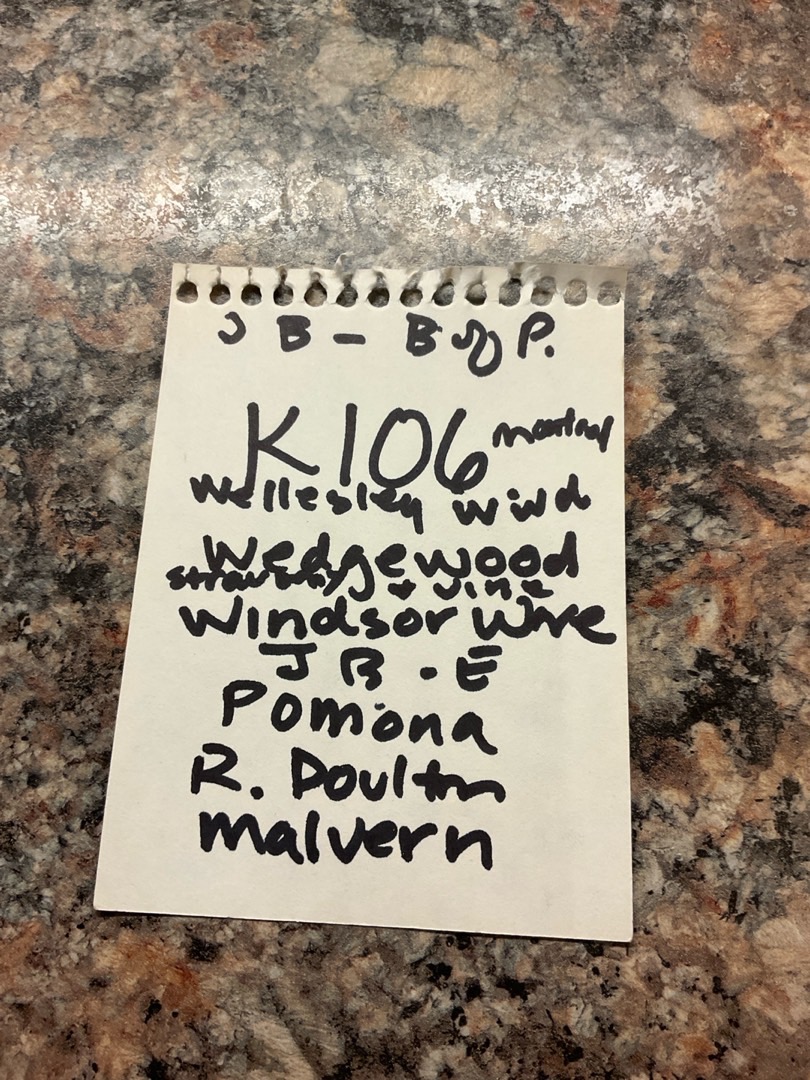 JB - B of P.
K106
Wellesley
Wedgewood
strawberry + vine
Windsor Ware
JB - E
Pomona
R. Doulton
malvern